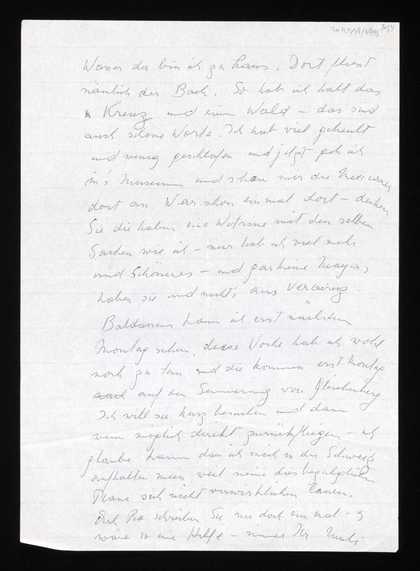 da bin ich zu Haus. Dort fliesst
nämlich der Bach. So hab ich halt das
Kreuz und einen Wald – das sind
auch schöne Worte. Ich hab viel geheult
und wenig geschlafen und jetzt geh ich
in's Museum und schau mir die
dort an. War schon einmal dort – denken
Sie die haben eine Vitrine mit den selben
Sachen wie ich – nur hab ich viel mehr
und Schöneres – und gar keine Mayas,
haben sie und nichts aus Veracruz.
kann ich erst nächsten
Montag sehen, diese Woche hab ich wohl
noch zu tun und sie kommen erst Montag
auf den Semmering von Gleichenberg
Ich will sie kurz besuchen und dann
wenn möglich direkt zurückfliegen – ich
glaube kaum dass ich mich in der Schweiz
aufhalten muss, weil meine diesbezüglichen
Pläne sich nicht verwirklichen lassen.
schreiben Sie mir doch einmal – es
wäre so eine Hilfe – immer Ihr